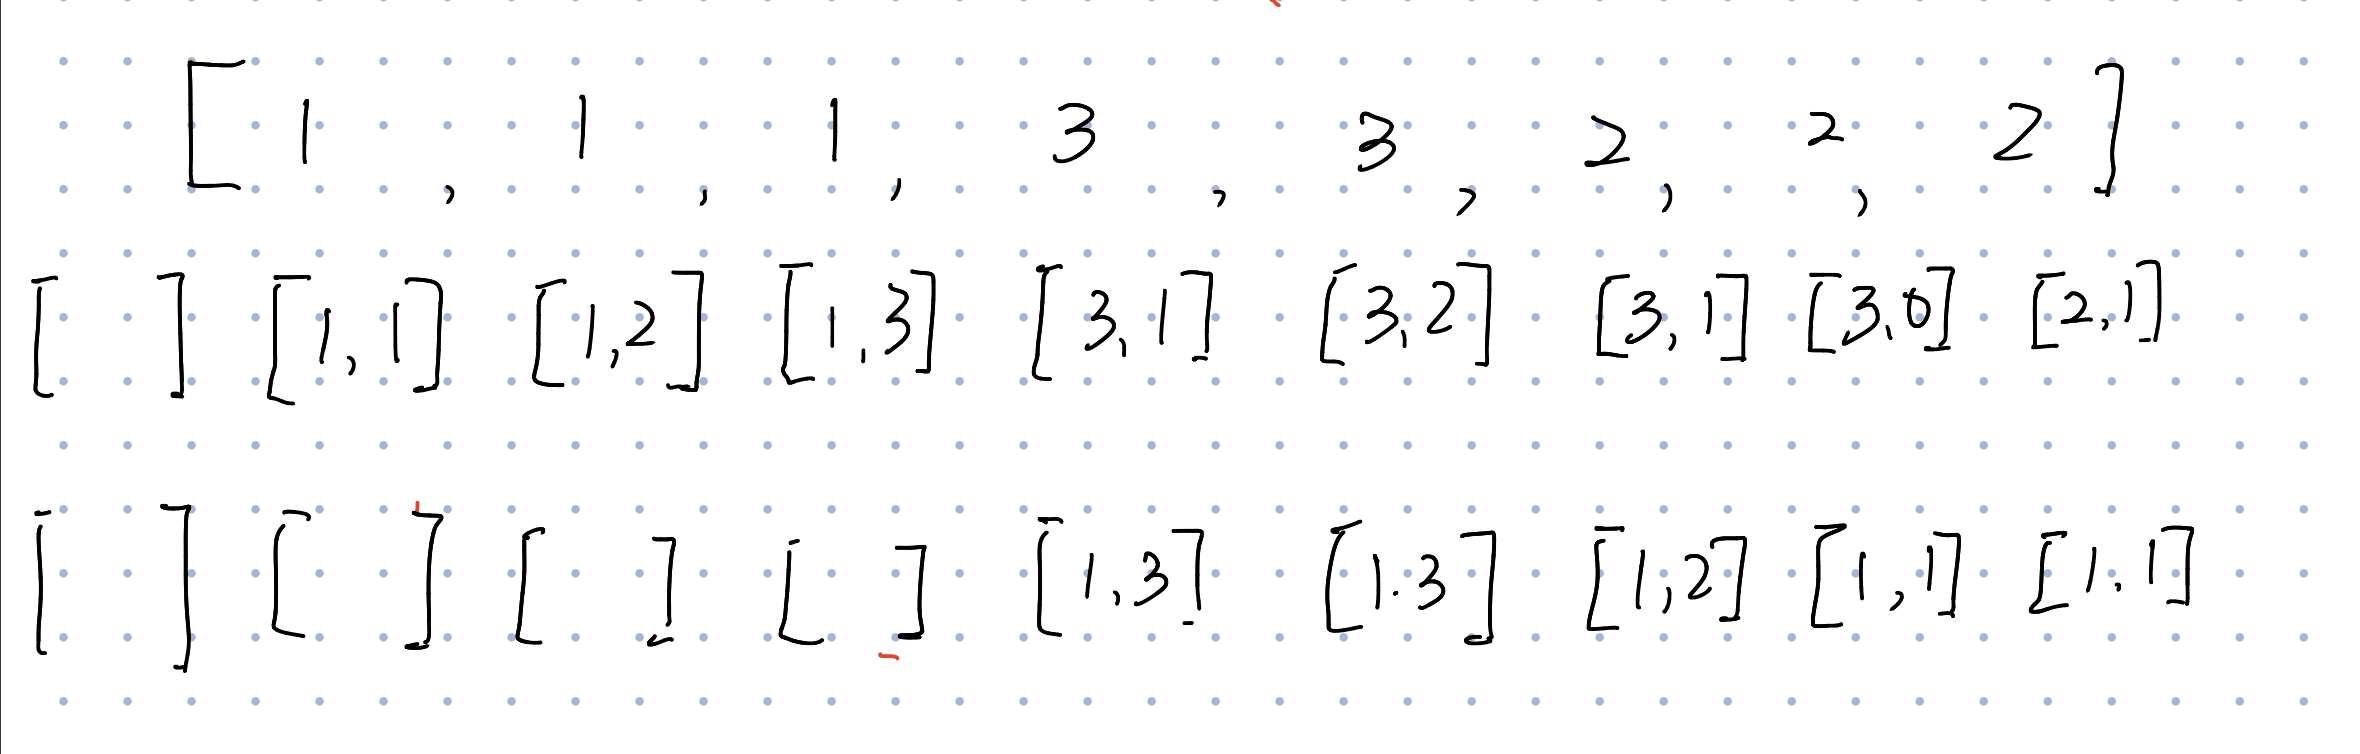 [ 1 , 1 , 1 , 3 , 3 , 2 , 2 , 2 ]
[ ] [1, 1] [1,2] [1,3] [3,1] [3,2] [3,1] [3,0] [2,1]
[ ] [ ] [ ] [ ] [1,3] [1.3] [1,2] [1,1] [1,1]